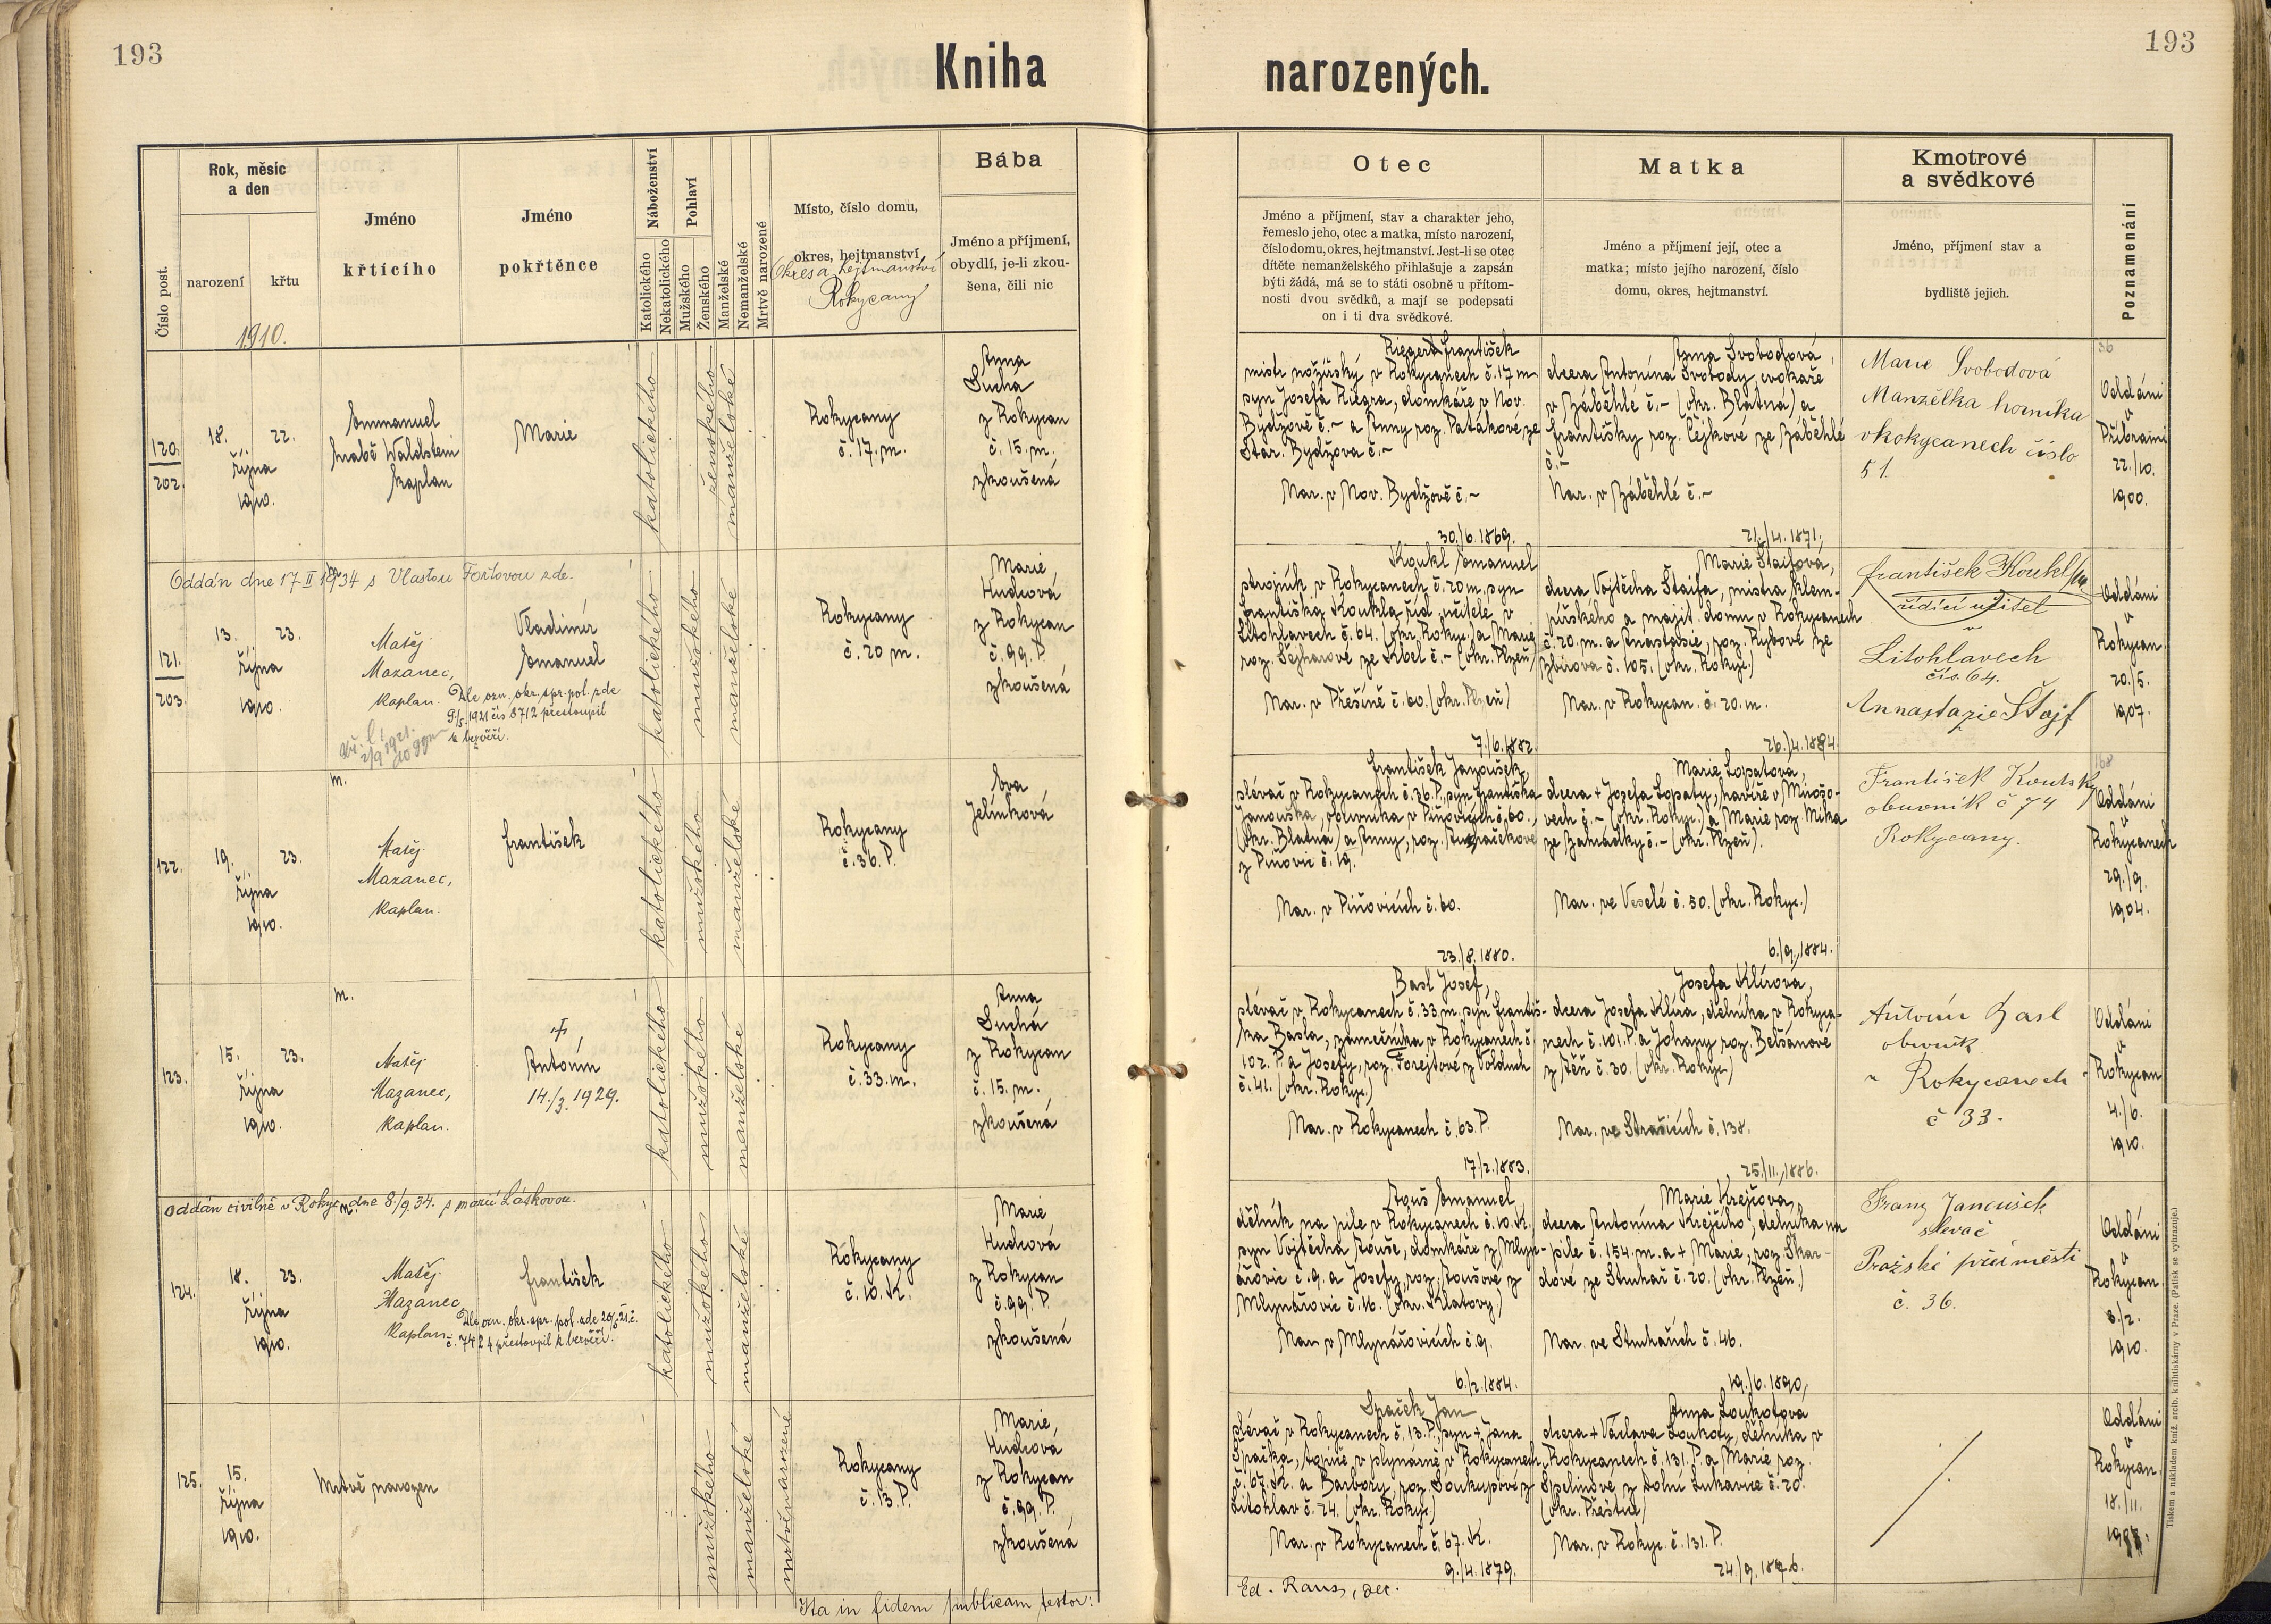 193
Kniha
narozených.
193
Číslo post.
Rok, měsíc
a den
narození
křtu
1910.
Jméno
křtícího
Jméno
pokřtěnce
Náboženství
Katolického
Nekatolického
Pohlaví
Mužského
Ženského
Manželské
Nemanželské
Mrtvě narozené
Místo, číslo domu,
okres, hejtmanství
Okres a hejtmanství
Rokycany
Bába
Jméno a příjmení,
obydlí, je-li zkou-
šena, čili nic
Otec
Jméno a příjmení, stav a charakter jeho,
řemeslo jeho, otec a matka, místo narození,
číslo domu, okres, hejtmanství. Jest-li se otec
dítěte nemanželského přihlašuje a zapsán
býti žádá, má se to státi osobně u přítom-
nosti dvou svědků, a mají se podepsati
on i ti dva svědkové.
Matka
Jméno a příjmení její, otec a
matka; místo jejího narození, číslo
domu, okres, hejtmanství.
Kmotrové
a svědkové
Jméno, příjmení stav a
bydliště jejich.
Poznamenání
120.
202.
18. 22.
října
1910.
Emmanuel
hrabě Waldstein
kaplan
Marie
katolického
ženského
manželské
Rokycany
č. 17. m.
Anna
Suchá
z Rokycan
č. 15. m.
zkoušená
Riegert František
mistr nožířský v Rokycanech č. 17 m
syn Josefa Riegra, domkáře v Nov.
Bydžově č. - a Anny roz. Patákové ze
Star. Bydžova č. -
Nar. v Nov. Bydžově č. -
30./6. 1869.
Anna Svobodová,
dcera Antonína Svobody, cvokaře
v Záběhlé č. - (okr. Blatná) a
Františky roz. Čejkové ze Záběhlé
č. -
Nar. v Záběhlé č. -
21./4. 1871.
Marie Svobodová
Manželka horníka
v Rokycanech číslo
51.
36
Oddáni
v
Příbrami
22./10.
1900.
Oddán dne 17 II 1934 s Vlastou Fořtovou zde.
121.
203.
13. 23.
října
1910.
Matěj
Mazanec,
kaplan.
Vladimír
Emanuel
Dle ozn. okr. spr. pol. zde
9./5. 1921 čís 8712 přestoupil
k bezvěří.
katolického
mužského
manželské
Rokycany
č. 20 m.
Marie
Hudcová
z Rokycan
č. 99. P.
zkoušená
Koukl Emanuel
strojník v Rokycanech č. 20 m, syn
Františka Koukla říd. učitele v
Litohlavech č. 64. (okr. Rokyc.) a Marie
roz. Šejharové ze Kbel č. - (okr. Plzeň)
Nar. v Přešíně č. 60. (okr. Plzeň)
7./6. 1882.
Marie Štaifová,
dcera Vojtěcha Štaifa, mistra klem-
pířského a majit. domu v Rokycanech
č. 20. m. a Anastasie, roz. Rybové ze
Zbirova č. 105. (okr. Rokyc.)
Nar. v Rokycan. č. 20. m.
26./4. 1884.
František Koukl
řídící učitel
v
Litohlavech
čís. 64.
Annastazie Štajf
Oddáni
v
Rokycan
20./5.
1907.
m.
122.
19. 23.
října
1910.
Matěj
Mazanec,
kaplan.
František
katolického
mužského
manželské
Rokycany
č. 36. P.
Eva
Jelínková
František Janoušek,
slévač v Rokycanech č. 36. P., syn Františka
z Piňovic č. 19.
Nar. v Piňovicích č. 60.
23./8. 1880.
Marie Lopatová,
dcera + Josefa Lopaty, havíře v Mirošo-
vech č. - (okr. Rokyc.) a Marie roz. Míka
ze Zahrádky č. - (okr. Plzeň).
Nar. ve Veselé č. 50. (okr. Rokyc.)
6./9. 1884.
František Koutský
obuvník č 74
Rokycany.
168
Oddáni
v
Rokycanech
29./9.
1904.
m.
123.
15. 23.
října
1910.
Matěj
Mazanec,
kaplan.
†
Antonín
14./3. 1929.
katolického
mužského
manželské
Rokycany
č. 33. m.
Anna
Suchá
z Rokycan
č. 15. m.
zkoušená
Basl Josef,
slévač v Rokycanech č. 33. m. syn Františ-
ka Basla, zámečníka v Rokycanech č.
102. P. a Josefy, roz. Forejtové z Volduch
č. 41. (okr. Rokyc.)
Nar. v Rokycanech č. 63. P.
17./2. 1883.
Josefa Klírová,
dcera Josefa Klíra, dělníka v Rokyca-
nech č. 101. P. a Johany roz. Belšánové
z Těň č. 30. (okr. Rokyc.)
Nar. ve Strašicích č. 138.
25./11. 1886.
Antonín Basl
obuvník
v Rokycanech
č 33.
Oddáni
v
Rokycan
4./6.
1910.
Oddán civilně v Rokyc. dne 8./9. 34. s Marií Láskovou.
m.
124.
18. 23.
října
1910.
Matěj
Mazanec
kaplan.
František
Dle ozn. okr. spr. pol. zde
přestoupil k bezvěří.
katolického
mužského
manželské
Rokycany
č. 10. K.
Marie
Hudcová
z Rokycan
č. 99. P.
zkoušená
Emanuel,
dělník na pile v Rokycanech č. 10. K.
syn Vojtěcha
domkáře z Mlyn-
ařovic č. 9. a Josefy, roz.
z
Mlynářovic č. 16. (okr. Klatovy)
Nar. v Mlynářovicích č. 9.
6./2. 1884.
Marie Krejčová,
dcera Antonína Krejčího, dělníka na
pile č. 154. m. a + Marie, roz. Škar-
dové ze Struhař č. 20. (okr. Plzeň.)
Nar. ve Struhařích č. 46.
19./6. 1890,
Franz Janoušek
slevač
Pražské předměstí
č. 36.
Oddáni
v
Rokycan.
8./2.
1910.
125.
15.
října
1910.
Mrtvě narozen
mužského
manželské
mrtvě narozené
Rokycany
č. 13. P.
Marie,
Hudcová
z Rokycan
č. 99. P.,
zkoušená
Spaček Jan
slévač v Rokycanech č. 13. P., syn + Jana
Špačka, topiče v plynárně v Rokycanech
č. 67. K. a Barbory, roz. Soukupové z
Litohlav č. 24. (okr. Rokyc.)
Nar. v Rokycanech č. 67. K.
9./4. 1879.
Anna Loukotová
dcera + Václava Loukoty, dělníka v
Rokycanech č. 131. P. a Marie roz.
Špelinové z Dolní Lukavice č. 20.
(okr. Přeštice)
Nar. v Rokyc. č. 131. P.
Oddáni
v
Rokycan.
18./11.
Ita in fidem publicam testor:
Ed. Raus, dec.
Tiskem a nákladem kníž. arcib. knihtiskárny v Praze. (Patisk se vyhrazuje.)